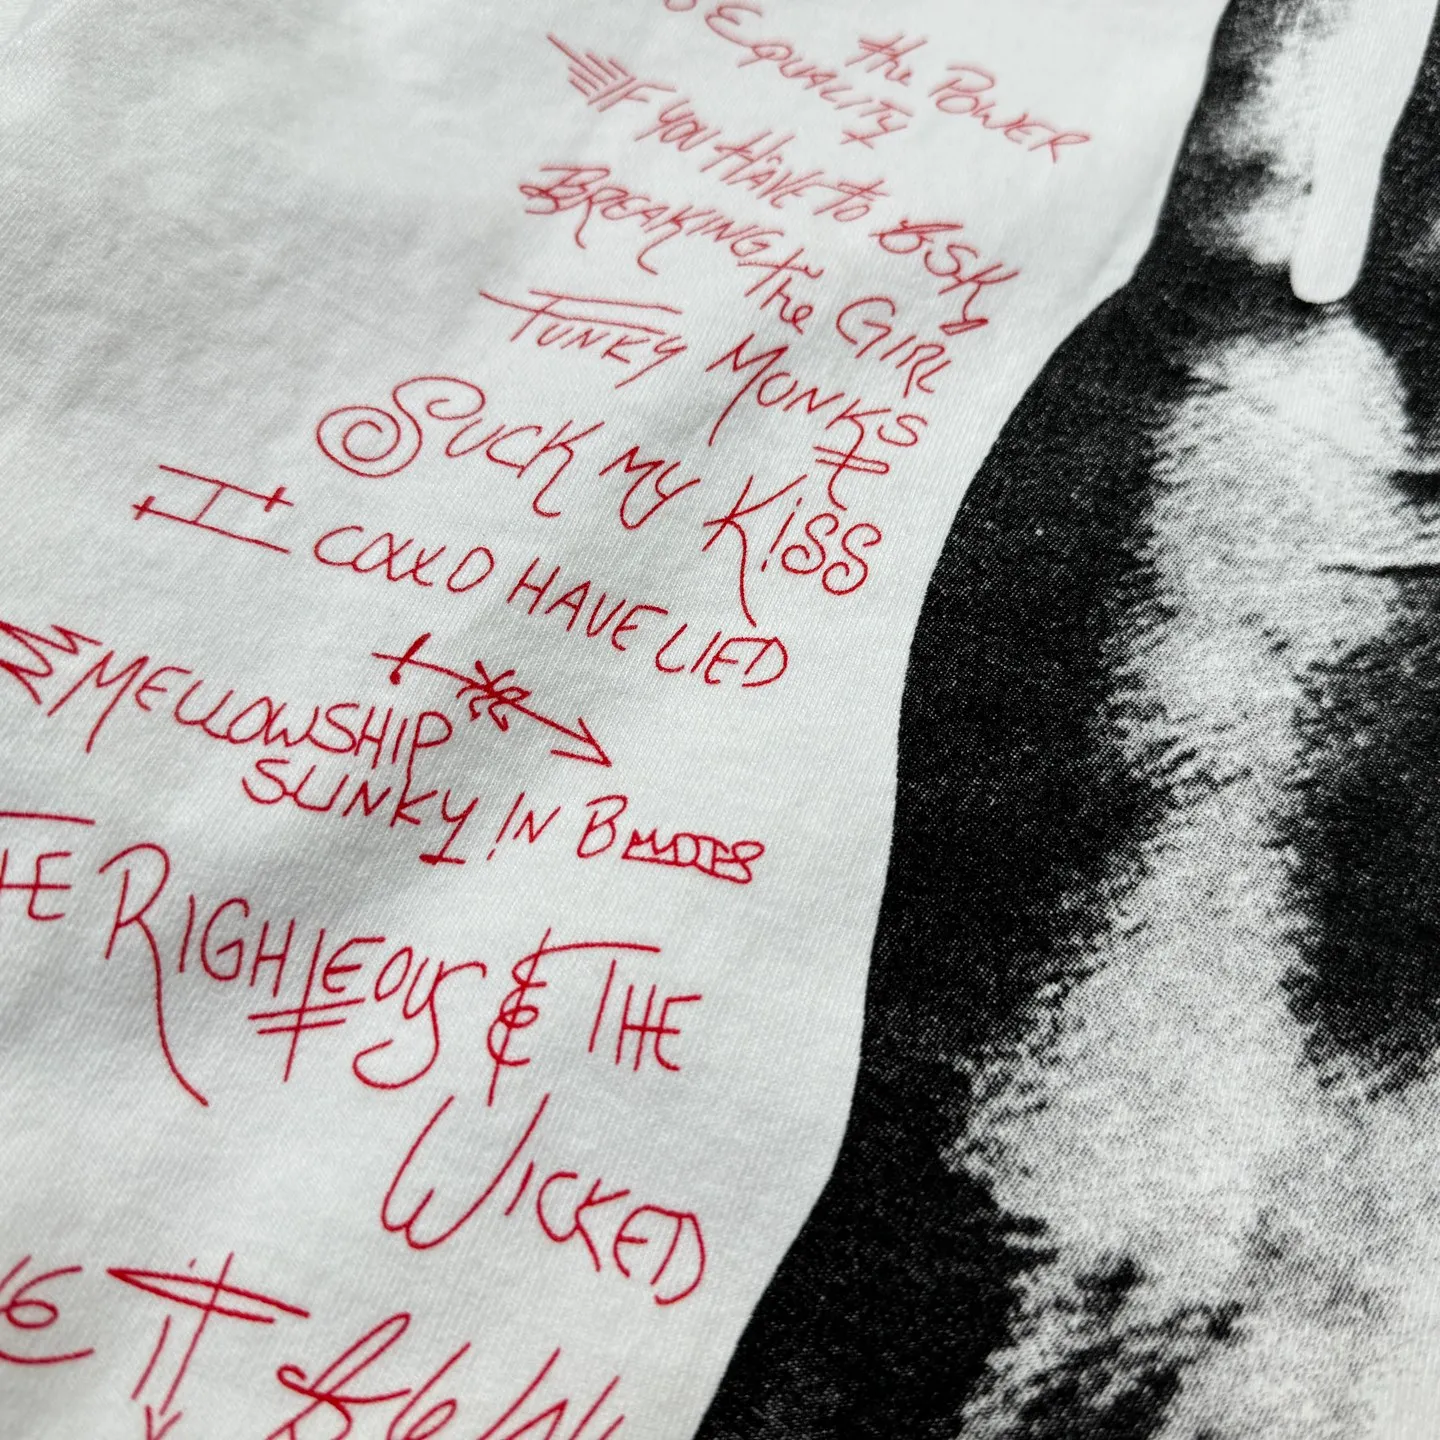 the POWER
EQUALITY
IF YOU HAVE to ASK
BREAKING the GIRL
FUNKY MONKS
SUCK MY KiSS
I COULD HAVE LIED
MELLOWSHIP
SLINKY IN B
THE RIGHTEOUS & THE
WICKED